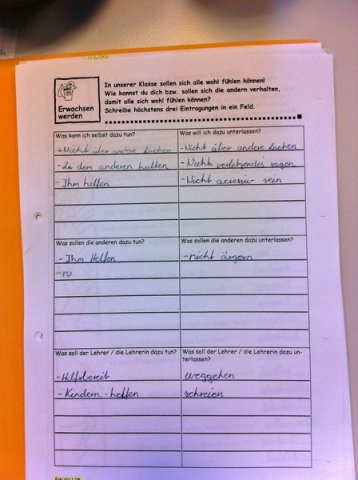 In unserer Klasse sollen sich alle wohl fühlen können!
Wie kannst du dich bzw. sollen sich die andern verhalten,
damit alle sich wohl fühlen können?
Schreibe höchstens drei Eintragungen in ein Feld.
Erwachsen
werden
Was kann ich selbst dazu tun?
Was will ich dazu unterlassen?
- Nicht über andere Lachen
- Nicht über andere Lachen
- Zu dem anderen halten
- Nichts verletzendes sagen
- Ihm helfen
- Nicht acresiv sein
Was sollen die anderen dazu tun?
Was sollen die anderen dazu unterlassen?
- Ihm Helfen
- nicht ärgern
Was soll der Lehrer / die Lehrerin dazu tun?
Was soll der Lehrer / die Lehrerin dazu un-
terlassen?
- Hilfsbereit
weggehen
- Kindern helfen
schreien